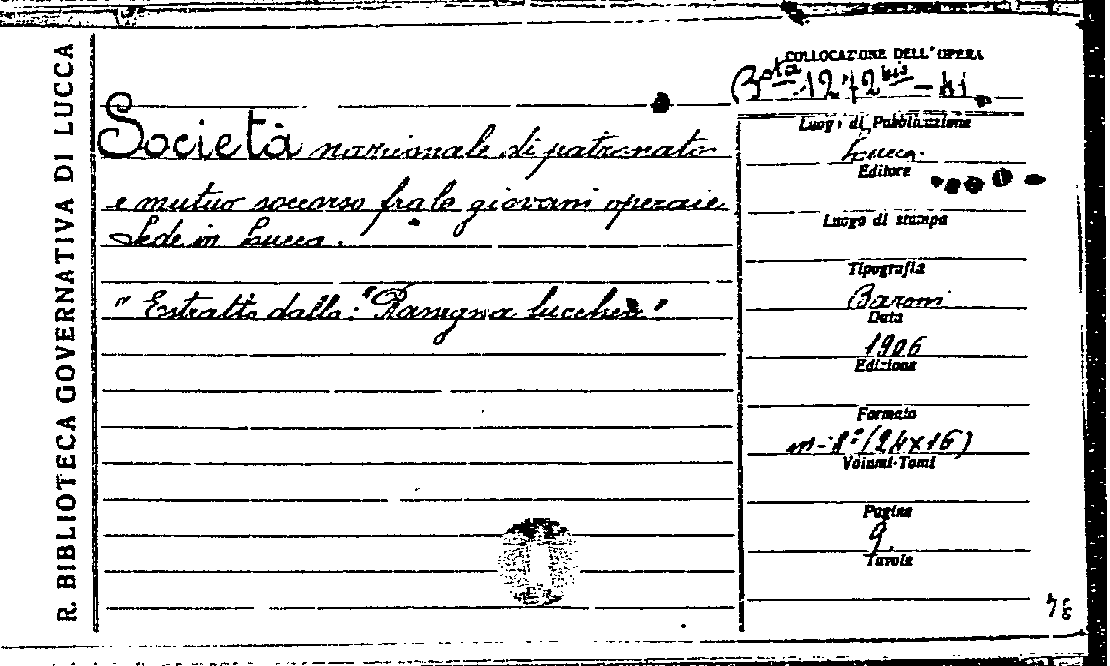 R. BIBLIOTECA GOVERNATIVA DI LUCCA
Società nazionale di patronato
e mutuo soccorso fra le giovani operaie
Sede in Lucca.
" Estratto dalla: "Rassegna lucchese"
COLLOCAZIONE DELL'OPERA
Bta 1272 bis - 41
Luogo di Pubblicazione
Lucca.
Editore
Luogo di stampa
Tipografia
Baroni
Data
1906
Edizione
Formato
in-8° (24x16)
Volumi-Tomi
Pagine
9.
Tavole